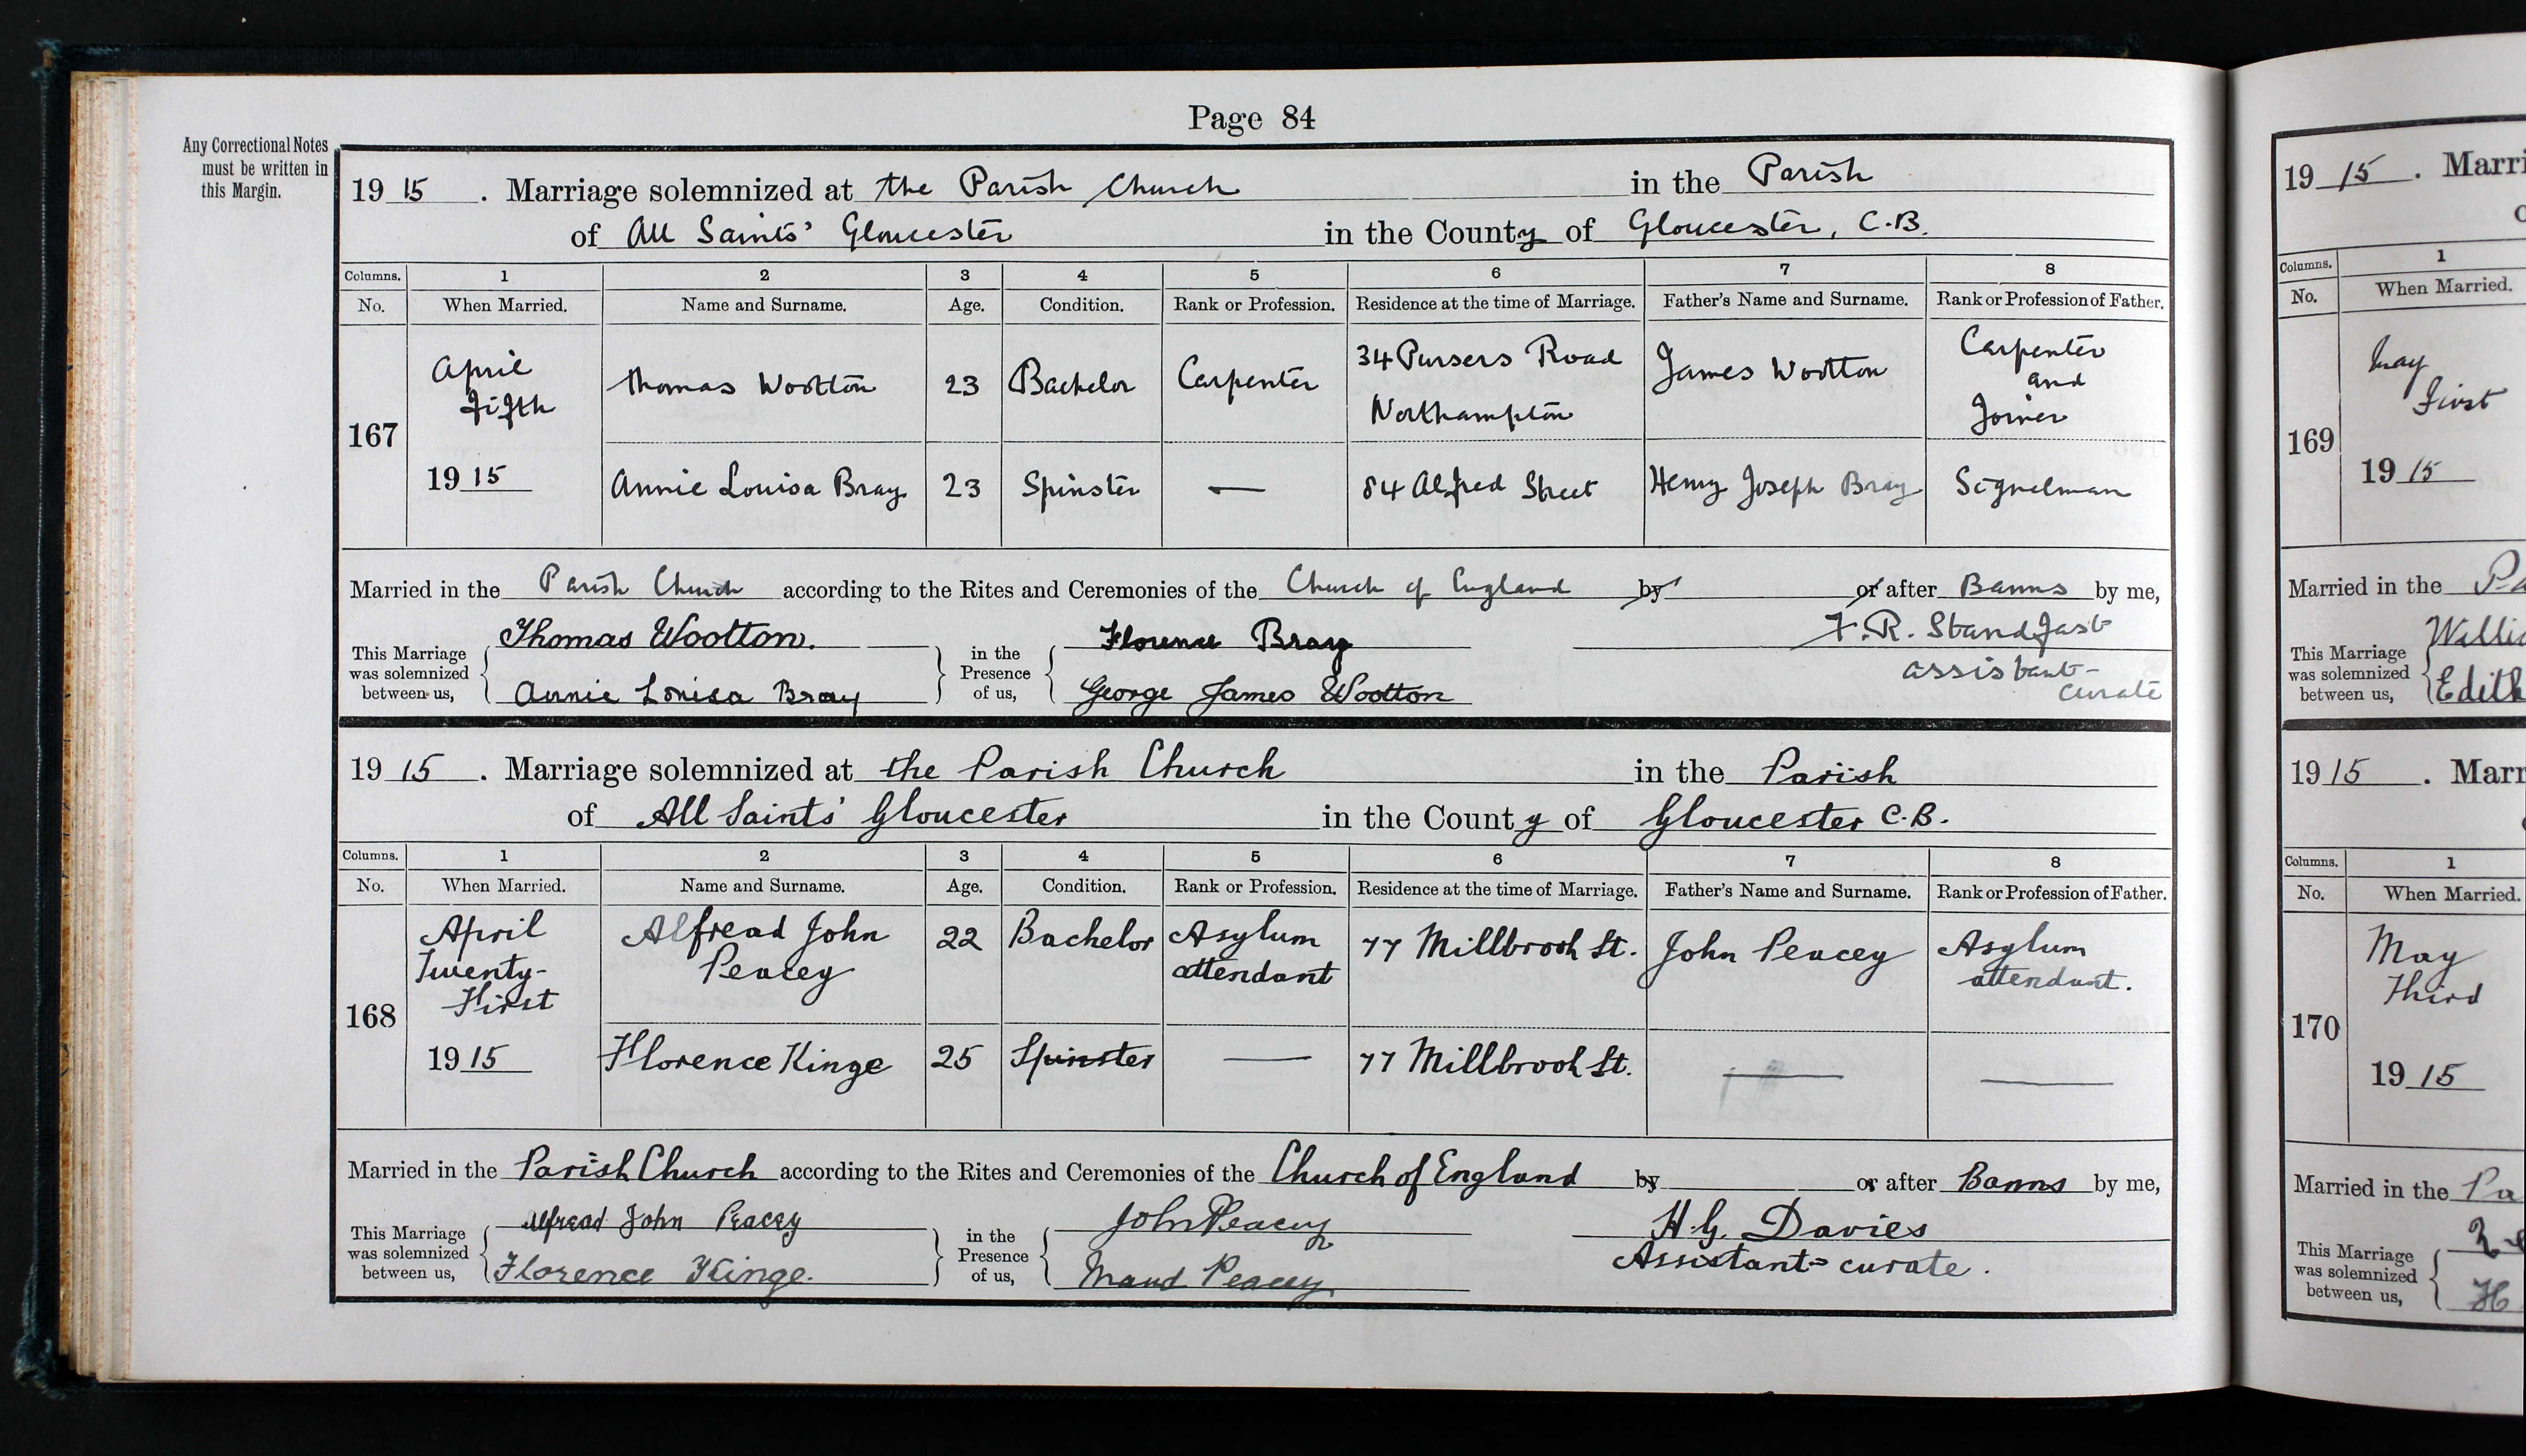 Page 84
Any Correctional Notes
must be written in
this Margin.
19 15 . Marriage solemnized at the Parish Church in the Parish
of All Saints' Gloucester in the County of Gloucester, C.B.
Columns. 1 2 3 4 5 6 7 8
No. When Married. Name and Surname. Age. Condition. Rank or Profession. Residence at the time of Marriage. Father's Name and Surname. Rank or Profession of Father.
167 April Fifth 1915 Thomas Wootton 23 Bachelor Carpenter 34 Pursers Road Northampton James Wootton Carpenter and Joiner
Annie Louisa Bray 23 Spinster — 84 Alfred Street Henry Joseph Bray Signelman
Married in the Parish Church according to the Rites and Ceremonies of the Church of England by or after Banns by me,
This Marriage was solemnized between us, Thomas Wootton. Annie Louisa Bray in the Presence of us, Florence Bray George James Wootton F.R. Standfast assistant-curate
19 15 . Marriage solemnized at the Parish Church in the Parish
of All Saints' Gloucester in the County of Gloucester C.B.
Columns. 1 2 3 4 5 6 7 8
No. When Married. Name and Surname. Age. Condition. Rank or Profession. Residence at the time of Marriage. Father's Name and Surname. Rank or Profession of Father.
168 April Twenty-First 1915 Alfread John Peacey 22 Bachelor Asylum attendant 77 Millbrook St. John Peacey Asylum attendant.
Florence Kinge 25 Spinster — 77 Millbrook St. — —
Married in the Parish Church according to the Rites and Ceremonies of the Church of England by or after Banns by me,
This Marriage was solemnized between us, Alfread John Peacey Florence Kinge. in the Presence of us, John Peacey Maud Peacey H.G. Davies Assistant-curate.
19 15 . Marri
Columns. 1
No. When Married.
169 May First 1915
Married in the Pa
This Marriage was solemnized between us, Willi Edith
19 15 . Marr
Columns. 1
No. When Married.
170 May Third 1915
Married in the Pa
This Marriage was solemnized between us, H